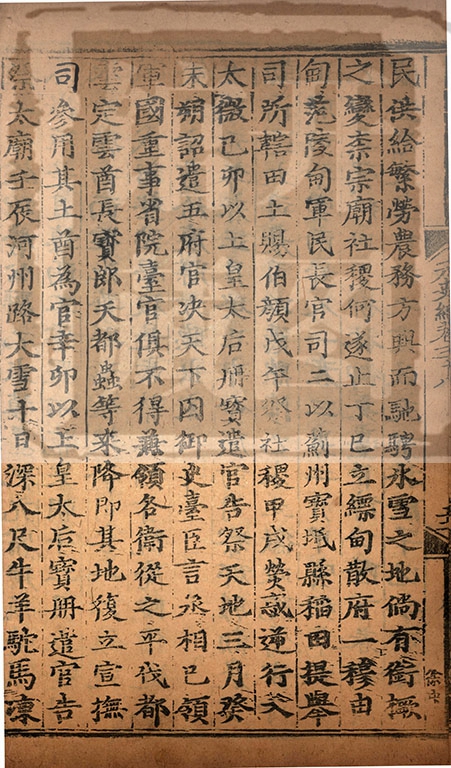 民供給繁勞農務方興而馳騁氷雪之地倘有銜橛
之變柰宗廟社稷何遂止丁巳立縹甸散府一穆由
甸范陵甸軍民長官司二以薊州寶坻縣稻田提舉
司所轄田土賜伯顏戊午祭社稷甲戌熒惑逆行入
太微己卯以上皇太后册寶遣官告祭天地三月癸
未朔詔遣五府官决天下囚御史臺臣言丞相已領
軍國重事省院臺官俱不得兼領各衞從之平伐都
雲定雲酋長寳郎天都蟲等來降即其地復立宣撫
司參用其土酋為官辛卯以上皇太后寶册遣官告
祭太廟壬辰河州路大雪十日深八尺牛羊駝馬凍
元史紀卷三十八